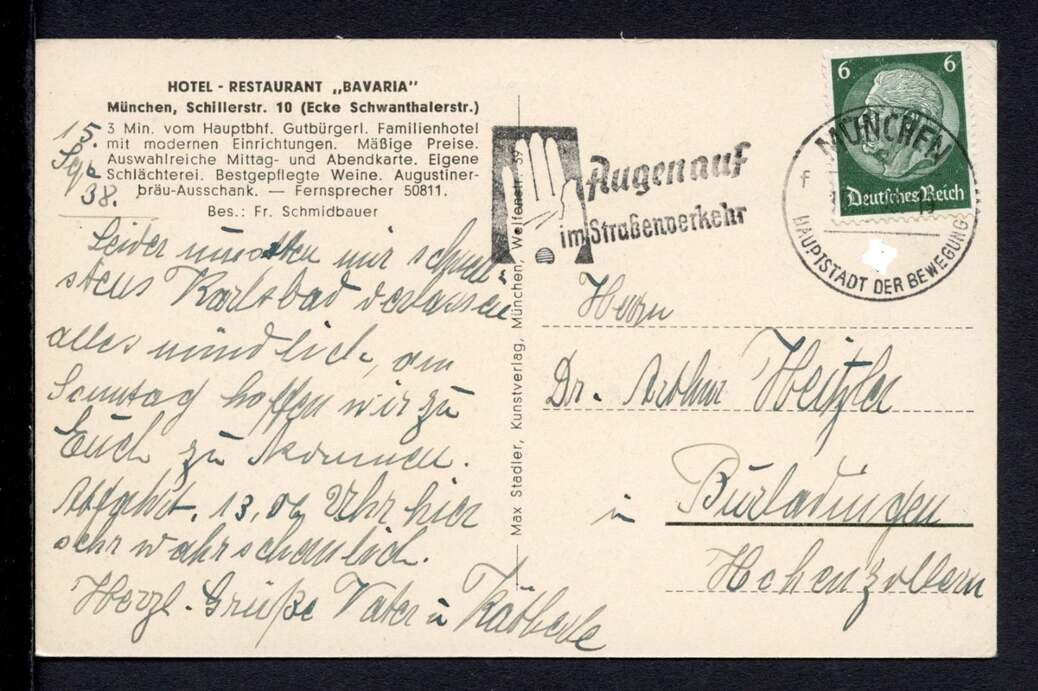 HOTEL - RESTAURANT „BAVARIA"
München, Schillerstr. 10 (Ecke Schwanthalerstr.)
3 Min. vom Hauptbhf. Gutbürgerl. Familienhotel
mit modernen Einrichtungen. Mäßige Preise.
Auswahlreiche Mittag- und Abendkarte. Eigene
Schlächterei. Bestgepflegte Weine. Augustiner-
bräu-Ausschank. — Fernsprecher 50811.
Bes.: Fr. Schmidbauer
15.
Sep.
38.
Leider mussten wir schnel-
stens Karlsbad verlassen
alles mündlich, am
Sonntag hoffen wir zu
Euch zu kommen.
Abfahrt, 13,06 Uhr hier
sehr wahrscheinlich.
Herzl. Grüße Vater u
Max Stadler, Kunstverlag, München, Welfenstr. 39
Augen auf
im Straßenverkehr
6 6
Deutsches Reich
MÜNCHEN
f
HAUPTSTADT DER BEWEGUNG
Herrn
Dr. Arthur Heitzler
in Burladingen
Hohenzollern